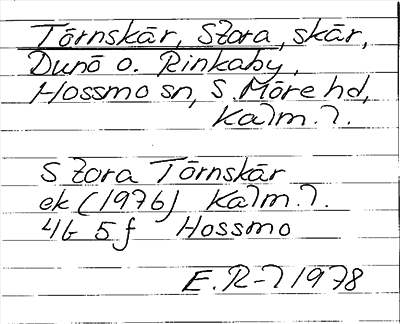 Törnskär, Stora, skär,
Dunö o. Rinkaby,
Hossmo sn, S. Möre hd,
Kalm. l.
Stora Törnskär
ek (1976) Kalm. l.
4G 5f Hossmo
E. R-l 1978